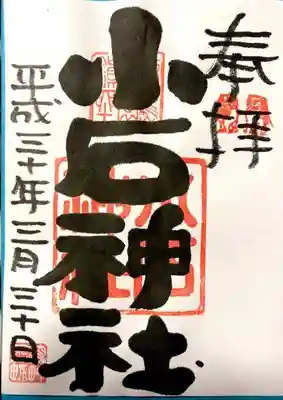 奉拝
小石神社
平成三十年三月三十日